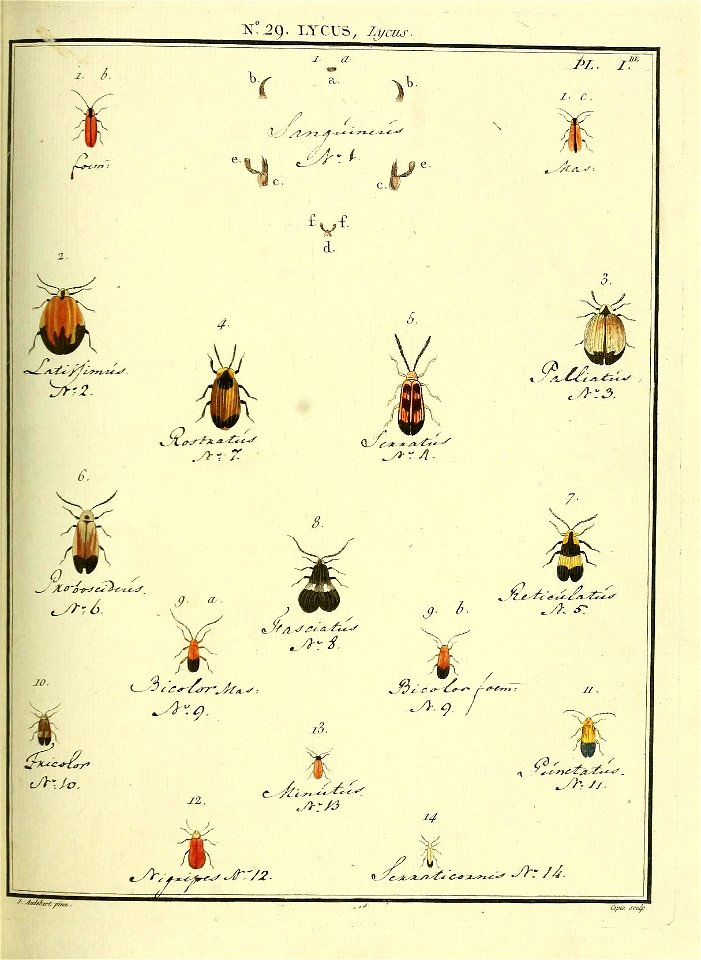 N.º 29. LYCUS, Lycus.
PL. I.RE
1. a
a.
b. b.
1. b.
1. c.
Sanguineus
Nº. 1
foem:
Mas:
e. e.
c. c.
f. f.
d.
2.
3.
4.
5.
Latissimus.
Nº. 2.
Palliatus.
Nº. 3.
Rostratus
Nº. 7.
Serratus
Nº. 4.
6.
7.
8.
Proboscideus.
Nº. 6.
Reticulatus
N. 5.
Fasciatus
Nº. 8.
9. a.
9. b.
Bicolor Mas:
Nº. 9.
Bicolor foem:
N. 9.
10.
11.
Tricolor
Nº. 10.
Punctatus.
Nº. 11.
13.
Minutus.
Nº. 13
12.
14
Nigripes Nº. 12.
Serraticornis Nº. 14.
J. Audebert pinx.
Copia sculp